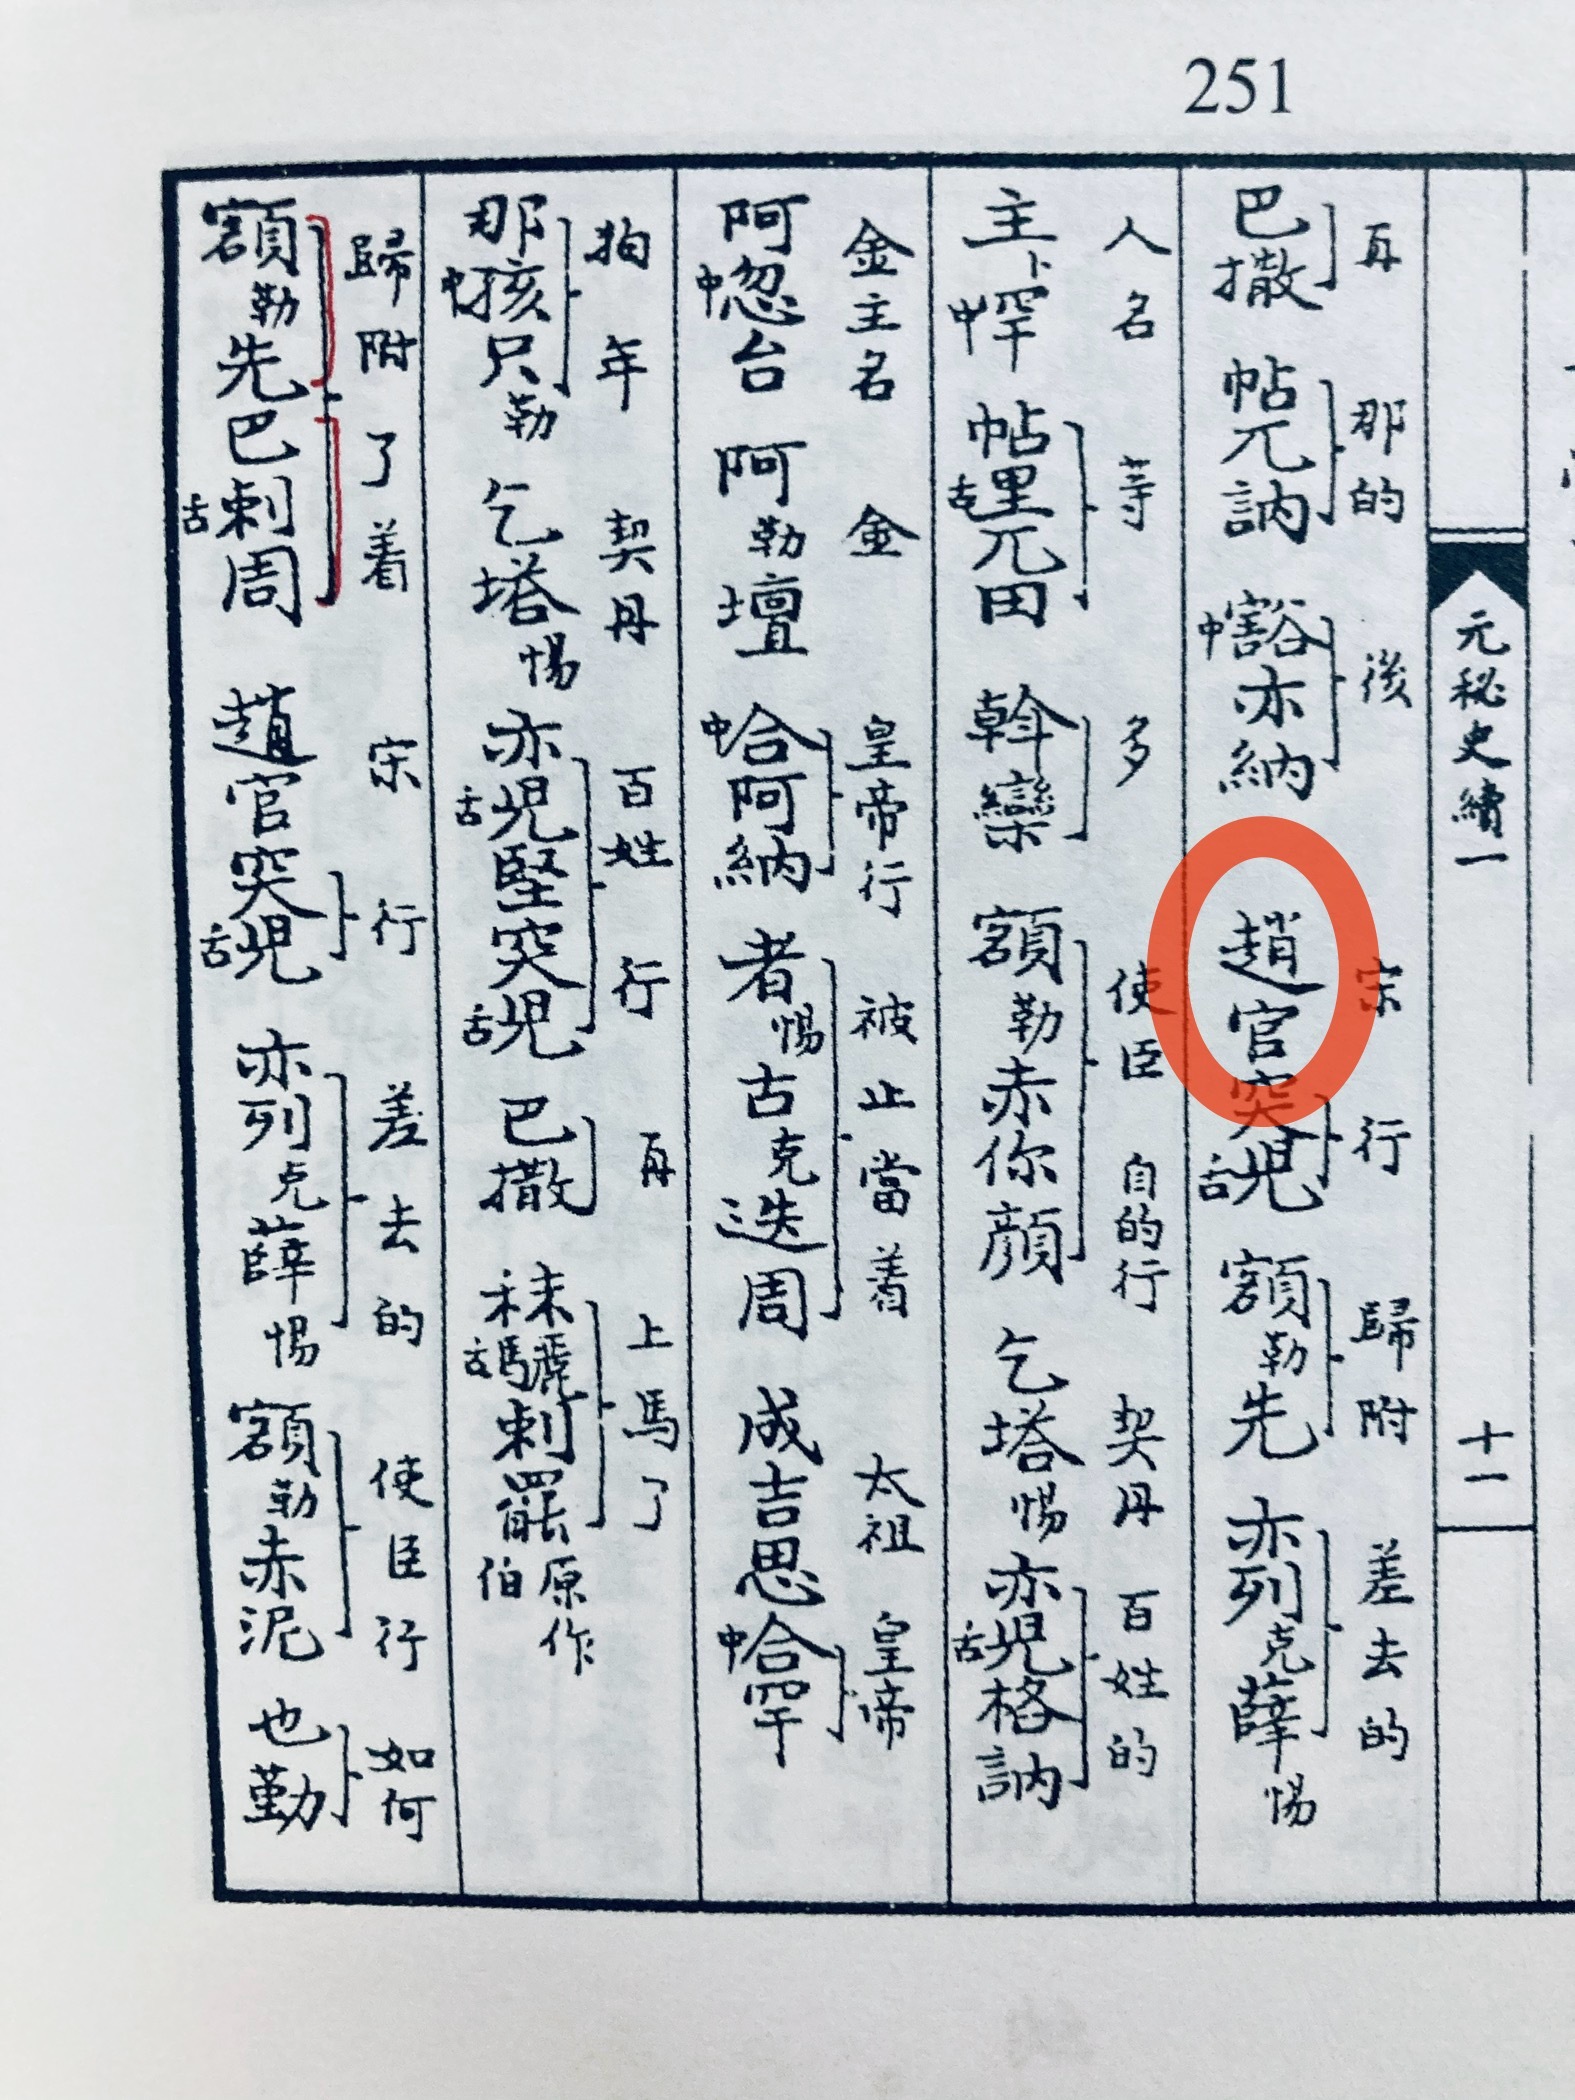 251
元秘史續一
十一
再 那的 後 宋 行 歸附 差去的
巴撒 帖兀訥 中豁亦納 趙官突舌児 額勒先 亦列克薛惕
人名 等 多 使臣 自的行 契丹 百姓的
主卜中罕 帖舌里兀田 斡欒 額勒赤你顏 乞塔惕 亦舌児格訥
金主名 金 皇帝行 被止當着 太祖 皇帝
阿中忽台 阿勒壇 中合阿納 者惕古克迭周 成吉思 中合罕
狗年 契丹 百姓行 再 上馬了
那中孩只勒 乞塔惕 亦舌児堅突舌児 巴撒 秣舌驪剌罷 原作伯
歸附了着 宋 行 差去的 使臣行 如何
額勒先巴舌剌周 趙官突舌児 亦列克薛惕 額勒赤泥 也勤